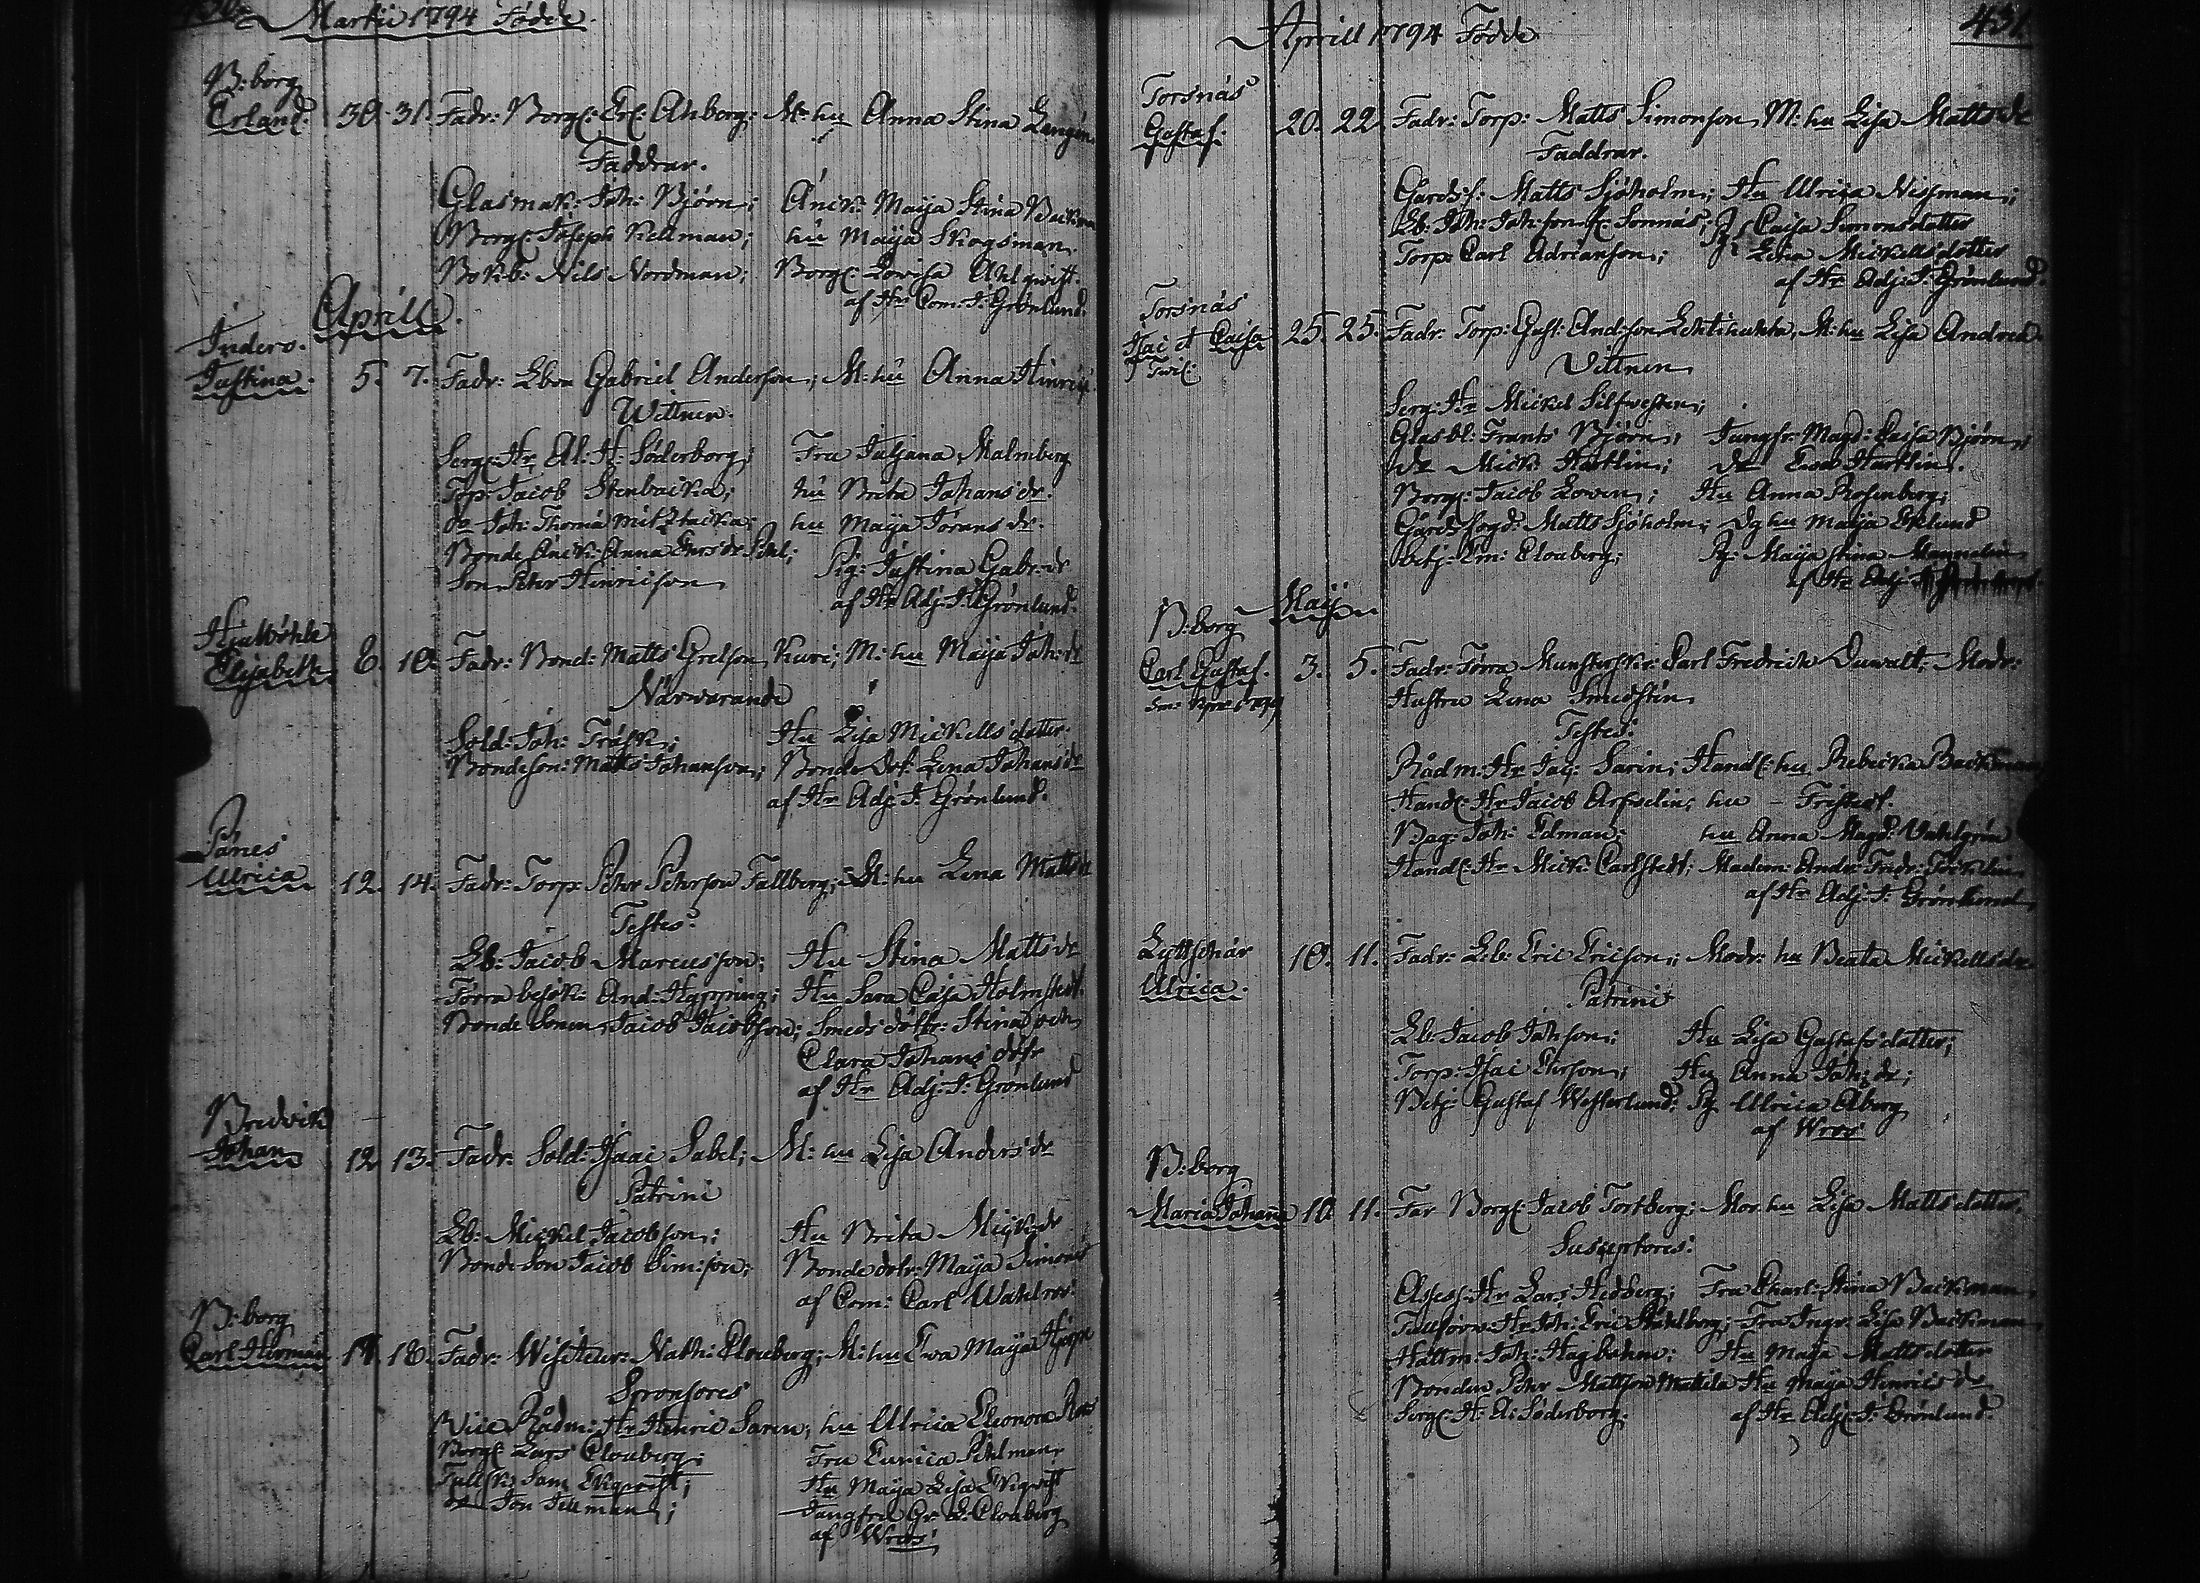 Martii 1794 Födde.
B:borg
Erland. 30. 31. Fadr: Borg: Er: Ahborg: M: hu Anna Stina Langén
Faddrar.
Glasmak: Joh: Björn; Änck: Maija Stina Backman
Borg: Joseph Kellman; hu Maija Skogsman
Bokb: Nils Nordman; Borg: Lovisa Ahlqvist.
af Hr Com: J: Grönlund.
Aprill.
Inders.
Justina. 5. 7. Fadr: Lbon Gabriel Anderson; M: hu Anna Hinrics
Wittnen.
Serg: Hr Al: H: Söderborg; Fru Juljana Malmberg
Torp: Jacob Stenbacka; hu Brita Johans dr.
do Joh: Thomä hu Maija Jörans dr.
Bonde Änck: Anna Ers dr Pehl; Pig: Justina Gabr: dr
Son Pehr Hinricson
af Hr Adj: J: Grönlund.
Hjulböhle
Elisabeth 8. 10. Fadr: Bond: Matts Grelson Kure; M: hu Maija Joh: dr
Närwarande
Sold: Joh: Träsk; Hu Lisa Mickells dotter
Bondeson: Matts Johanson; Bonde Dot: Lena Johans dr
af Hr Adj: J: Grönlund.
Pänes
Ulrica 12. 14. Fadr: Torp: Pehr Pehrson Fallberg; M: hu Lena Matts dr
Testes.
Lb: Jacob Marcusson; Hu Stina Matts dr
Torra besök: And: Hypping; Hu Sara Cajsa Holmstedt.
Bonde Sonen Jacob Jacobson; Smeds döttr: Stina och
Clara Johans döttr
af Hr Adj: J: Grönlund
Bredvik
Johan 12. 13. Fadr: Sold: Isaac Sabel; M: hu Lisa Anders dr
Patrini
Lb: Mickel Jacobson; Hu Brita Mick: dr
Bonde Son Jacob Sim:son; Bonde dotr: Maija Simons
af Com: Carl Wahlroos.
B:borg
Carl Herman 17. 18. Fadr: Wisiteur: Nath: Clouberg; M: hu Ewa Maija
Sponsores
Vice Rådm: Hr Henric Saren; hu Ulrica Eleonora
Borg: Lars Clouberg; Fru Eunica Pihlman
Tullsk: Sam Ekqwist; Hu Maija Lisa Ekqwist
do Jon Tillman; Jungfru Gr: L: Clouberg
af Wroos
Aprill 1794 Födde
431.
Torsnäs
Gustaf. 20. 22. Fadr: Torp: Matts Simonson, M: hu Lisa Matts dr
Faddrar.
Gårdsf: Matts Sjöholm; Hu Ulrica Nissman;
Lb: Joh: Joh:son fr: Sonnäs; Caisa Simonsdotter
Torp: Carl Adrianson; Lena Mickellsdotter
af Hr Adj: J: Grönlund.
Torsnäs
Isac et Caisa 25. 25. Fadr: Torp: Gust: And:son Lehtihuhta, M: hu Lisa Andred:
Twil:
Vittnen
Serg: Hr Mickel Silfwesten;
Glasbl: Frants Björn; Jungfr: Magd: Caisa Björn;
do Mick: Hartlin; do Ewa Hartlin.
Borg: Jacob Lowen; Hu Anna Rosenberg;
Gårds fogd: Matts Sjöholm; Dg hu Maija Eklund
Betj: Em: Clouberg; Pg: Maija Stina
af Hr Adj:
Maij
B:borg
Carl Gustaf. 3. 5. Fadr: Torra Munsterskr: Carl Fredrich Duwalt; Modr:
Hustru Lena Smedstén
Testes.
Rådm: Hr Jac: Sarin; Handl: hu Rebecka Backman
Handl: Hr Jacob Arfvelin; hu - Fristedt.
Bag: Joh: Edman; hu Anna Magd: Wahlgrén
Handl: Hr Mick: Carlstedt; Madem: Andr: Fredr: Föcklin
af Hr Adj: J: Grönlund
Lyttskär
Ulrica. 10. 11. Fadr: Lb: Eric Ericson; Modr: hu Beata Mickellsdr
Patrini
Lb: Jacob Johson; Hu Lisa Gustafsdotter;
Torp: Isac Ehrson; Hu Anna Joh: dr;
Betj: Gustaf Westerlund; Pg Ulrica Åberg
af Wroos
B:borg
Maria Johana 10. 11. Far Borg: Jacob Tortberg; Mor hu Lisa Mattsdotter.
Susceptores.
Assess: Hr Lars Hedberg; Fru Charl: Stina Backman
Tullförw: Hr Joh: Eric Ståhlberg; Fru Inger Lisa Backman
Hattm: Joh: Hagbohm; Hu Maja Mattsdotter
Bonden Pehr Mattson Mattila Hu Maja Henrics dr
Serg: H: A: Söderborg. af Hr Adj: J: Grönlund.